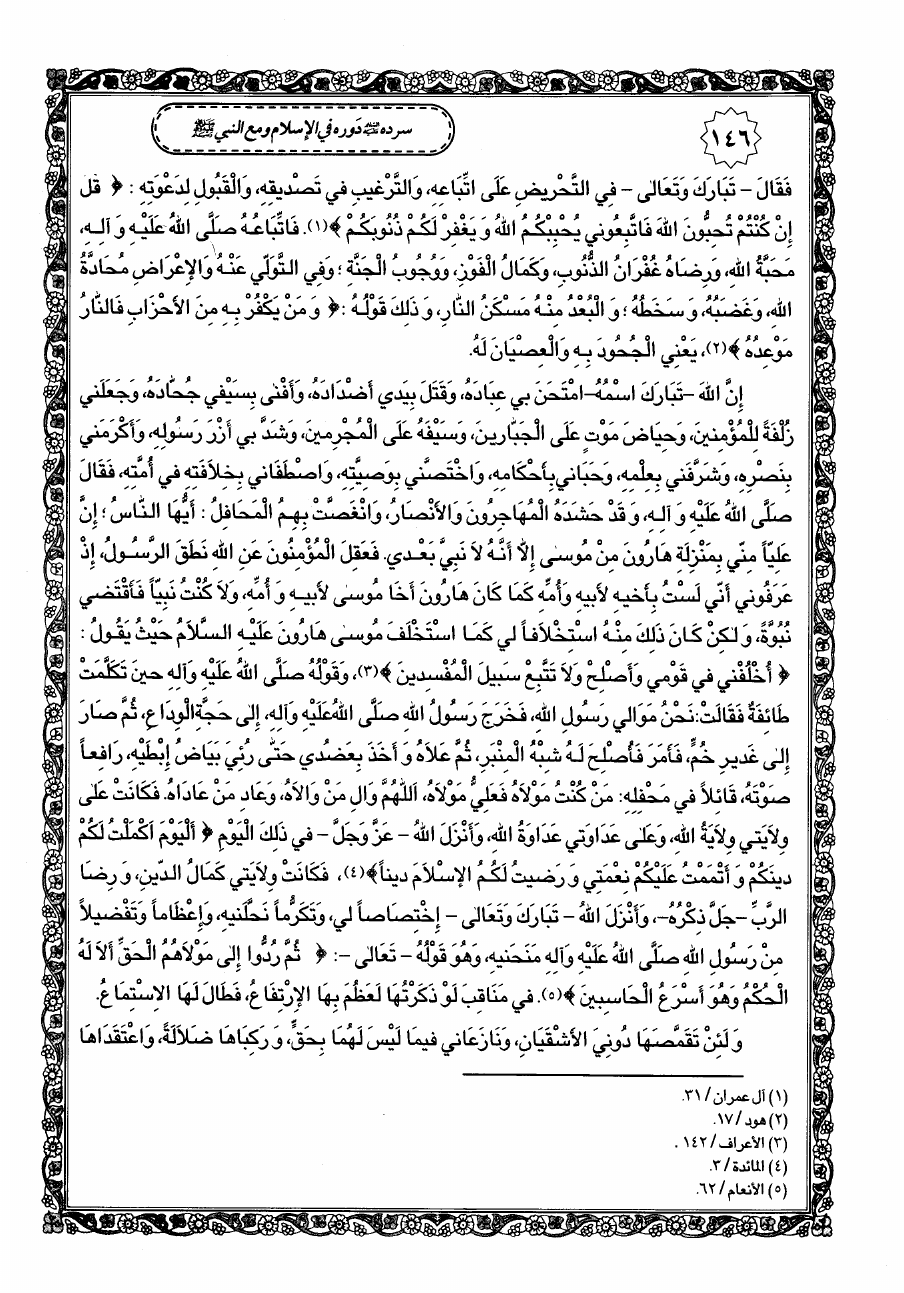 ١٤٦
سرده ﵇ دوره في الإسلام ومع النبي ﷺ
فَقَالَ – تَبَارَكَ وَتَعَالىٰ – فِي التَّحْرِيضِ عَلَى اتِّبَاعِهِ، وَالتَّرْغِيبِ فِي تَصْدِيقِهِ، وَالْقَبُولِ لِدَعْوَتِهِ : ﴿ قُل
إِنْ كُنْتُمْ تُحِبُّونَ اللهَ فَاتَّبِعُونِي يُحْبِبْكُمُ اللهُ وَ يَغْفِرْ لَكُمْ ذُنُوبَكُمْ ﴾(١). فَاتِّبَاعُهُ صَلَّى اللهُ عَلَيْهِ وَ آلِهِ،
مَحَبَّةُ اللهِ، وَرِضَاهُ غُفْرَانُ الذُّنُوبِ، وَكَمَالُ الْفَوْزِ، وَوُجُوبُ الْجَنَّةِ ؛ وَفِي التَّوَلِّي عَنْهُ وَالإِعْرَاضِ مُحَادَّةُ
اللهِ، وَغَضَبُهُ، وَ سَخَطُهُ ؛ وَ الْبُعْدُ مِنْهُ مَسْكَنُ النَّارِ، وَ ذَلِكَ قَوْلُهُ :﴿ وَ مَنْ يَكْفُرْ بِهِ مِنَ الأَحْزَابِ فَالنَّارُ
مَوْعِدُهُ ﴾(٢)، يَعْنِي الْجُحُودَ بِهِ وَالْعِصْيَانَ لَهُ.
إِنَّ اللهَ –تَبَارَكَ اسْمُهُ–امْتَحَنَ بِي عِبَادَهُ، وَقَتَلَ بِيَدِي أَضْدَادَهُ، وَأَفْنَىٰ بِسَيْفِي جُحَّادَهُ، وَجَعَلَنِي
زُلْفَةً لِلْمُؤْمِنِينَ، وَحِيَاضَ مَوْتٍ عَلَى الْجَبَّارِينَ، وَسَيْفَهُ عَلَى الْمُجْرِمِينَ، وَشَدَّ بِي أَزْرَ رَسُولِهِ، وَأَكْرَمَنِي
بِنَصْرِهِ، وَشَرَّفَنِي بِعِلْمِهِ، وَحَبَانِي بِأَحْكَامِهِ، وَاخْتَصَّنِي بِوَصِيَّتِهِ، وَاصْطَفَانِي بِخِلاَفَتِهِ فِي أُمَّتِهِ، فَقَالَ
صَلَّى اللهُ عَلَيْهِ وَ آلِهِ، وَ قَدْ حَشَدَهُ الْمُهَاجِرُونَ وَالأَنْصَارُ، وَانْغَصَّتْ بِهِمُ الْمَحَافِلُ : أَيُّهَا النَّاسُ ؛ إِنَّ
عَلِيّاً مِنِّي بِمَنْزِلَةِ هَارُونَ مِنْ مُوسىٰ إِلاَّ أَنَّهُ لاَ نَبِيَّ بَعْدِي. فَعَقِلَ الْمُؤْمِنُونَ عَنِ اللهِ نَطَقَ الرَّسُولُ، إِذْ
عَرَفُونِي أَنِّي لَسْتُ بِأَخِيهِ لأَبِيهِ وَأُمِّهِ كَمَا كَانَ هَارُونَ أَخَا مُوسىٰ لأَبِيهِ وَ أُمِّهِ، وَلاَ كُنْتُ نَبِيّاً فَأَقْتَضِي
نُبُوَّةً، وَ لكِنْ كَانَ ذَلِكَ مِنْهُ اسْتِخْلاَفاً لِي كَمَا اسْتَخْلَفَ مُوسىٰ هَارُونَ عَلَيْهِ السَّلاَمُ حَيْثُ يَقُولُ :
﴿ أُخْلُفْنِي فِي قَوْمِي وَأَصْلِحْ وَلاَ تَتَّبِعْ سَبِيلَ الْمُفْسِدِينَ ﴾(٣)، وَقَوْلُهُ صَلَّى اللهُ عَلَيْهِ وَآلِهِ حِينَ تَكَلَّمَتْ
طَائِفَةٌ فَقَالَتْ:نَحْنُ مَوَالِي رَسُولِ اللهِ، فَخَرَجَ رَسُولُ اللهِ صَلَّى اللهُ عَلَيْهِ وَآلِهِ، إِلىٰ حَجَّةِ الْوِدَاعِ، ثُمَّ صَارَ
إِلىٰ غَدِيرِ خُمٍّ، فَأَمَرَ فَأُصْلِحَ لَهُ شِبْهُ الْمِنْبَرِ، ثُمَّ عَلاَهُ وَ أَخَذَ بِعَضُدِي حَتّىٰ رُئِيَ بَيَاضُ إِبْطَيْهِ، رَافِعاً
صَوْتَهُ، قَائِلاً فِي مَحْفِلِهِ: مَنْ كُنْتُ مَوْلاَهُ فَعَلِيٌّ مَوْلاَهُ، اَللّٰهُمَّ وَالِ مَنْ وَالاَهُ، وَعَادِ مَنْ عَادَاهُ. فَكَانَتْ عَلىٰ
وِلاَيَتِي وِلاَيَةُ اللهِ، وَعَلىٰ عَدَاوَتِي عَدَاوَةُ اللهِ، وَأَنْزَلَ اللهُ – عَزَّ وَجَلَّ – فِي ذَلِكَ الْيَوْمِ ﴿ أَلْيَوْمَ أَكْمَلْتُ لَكُمْ
دِينَكُمْ وَ أَتْمَمْتُ عَلَيْكُمْ نِعْمَتِي وَ رَضِيتُ لَكُمُ الإِسْلاَمَ دِيناً﴾(٤)، فَكَانَتْ وِلاَيَتِي كَمَالُ الدِّينِ، وَ رِضَا
الرَّبِّ –جَلَّ ذِكْرُهُ–، وَأَنْزَلَ اللهُ – تَبَارَكَ وَتَعَالىٰ – إِخْتِصَاصاً لِي، وَتَكَرُّماً نَحَلَنِيهِ، وَإِعْظَاماً وَتَفْضِيلاً
مِنْ رَسُولِ اللهِ صَلَّى اللهُ عَلَيْهِ وَآلِهِ مَنَحَنِيهِ، وَهُوَ قَوْلُهُ – تَعَالىٰ –: ﴿ ثُمَّ رُدُّوا إِلىٰ مَوْلاَهُمُ الْحَقِّ أَلاَ لَهُ
الْحُكْمُ وَهُوَ أَسْرَعُ الْحَاسِبِينَ ﴾(٥). فِي مَنَاقِبَ لَوْ ذَكَرْتُهَا لَعَظُمَ بِهَا الاِرْتِفَاعُ، فَطَالَ لَهَا الاِسْتِمَاعُ.
وَ لَئِنْ تَقَمَّصَهَا دُونِيَ الأَشْقَيَانِ، وَنَازَعَانِي فِيمَا لَيْسَ لَهُمَا بِحَقٍّ، وَ رَكِبَاهَا ضَلاَلَةً، وَاعْتَقَدَاهَا
(١) آل عمران / ٣١.
(٢) هود / ١٧.
(٣) الأعراف / ١٤٢ .
(٤) المائدة / ٣.
(٥) الأنعام / ٦٢.